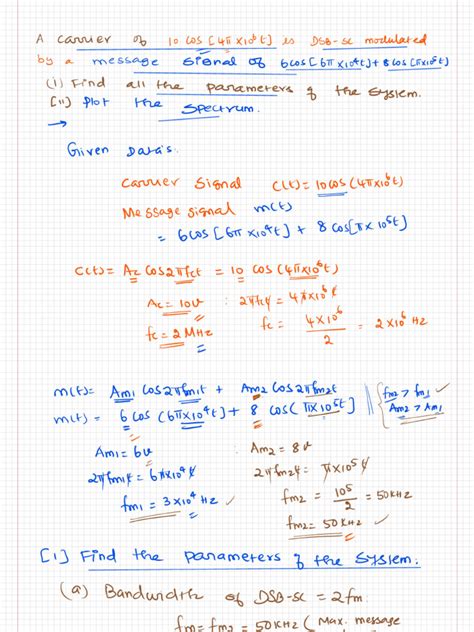 A carrier of 10 cos [4π×10⁶t] is DSB-SC modulated
by a message signal of 6cos[6π×10⁴t]+8cos[π×10⁵t]
(i) Find all the parameters of the system.
[ii] Plot the spectrum.
→
Given Data's.
Carrier Signal C(t) = 10cos(4π×10⁶t)
Message signal m(t)
= 6cos[6π×10⁴t] + 8cos[π×10⁵t]
C(t) = Ac cos2πfct = 10 cos (4π×10⁶t)
Ac = 10v : 2πfct = 4π×10⁶t
fc = 2MHz fc = 4×10⁶/2 = 2×10⁶ Hz
m(t) = Am1 cos2πfm1t + Am2 cos2πfm2t
m(t) = 6 cos (6π×10⁴t) + 8 cos(π×10⁵t) fm2 > fm1 ✓ Am2 > Am1
Am1 = 6v Am2 = 8v
2πfm1t = 6π×10⁴t 2πfm2t = π×10⁵t
fm1 = 3×10⁴ Hz ✓ fm2 = 10⁵/2 = 50kHz
fm2 = 50kHz ✓
[1] Find the parameters of the system.
(a) Bandwidth of DSB-SC = 2fm.
fm = fm2 = 50kHz (Max. message